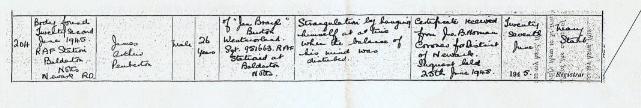 204
Body found
Twenty Second
June 1945.
RAF Station
Balderton
Notts
Newark RD.
James
Arthur
Pemberton
Male
26
years
of "Jan Brack"
Burton
Westmorland.
Sgt. 951663. RAF
Stationed at
Balderton
Notts.
Strangulation by hanging
himself at a time
when the balance of
his mind was
disturbed.
Certificate received
from Jno. B. Norman
Coroner for District
of Newark.
Inquest held
25th June 1945.
Twenty
Seventh
June
1945.
Registrar